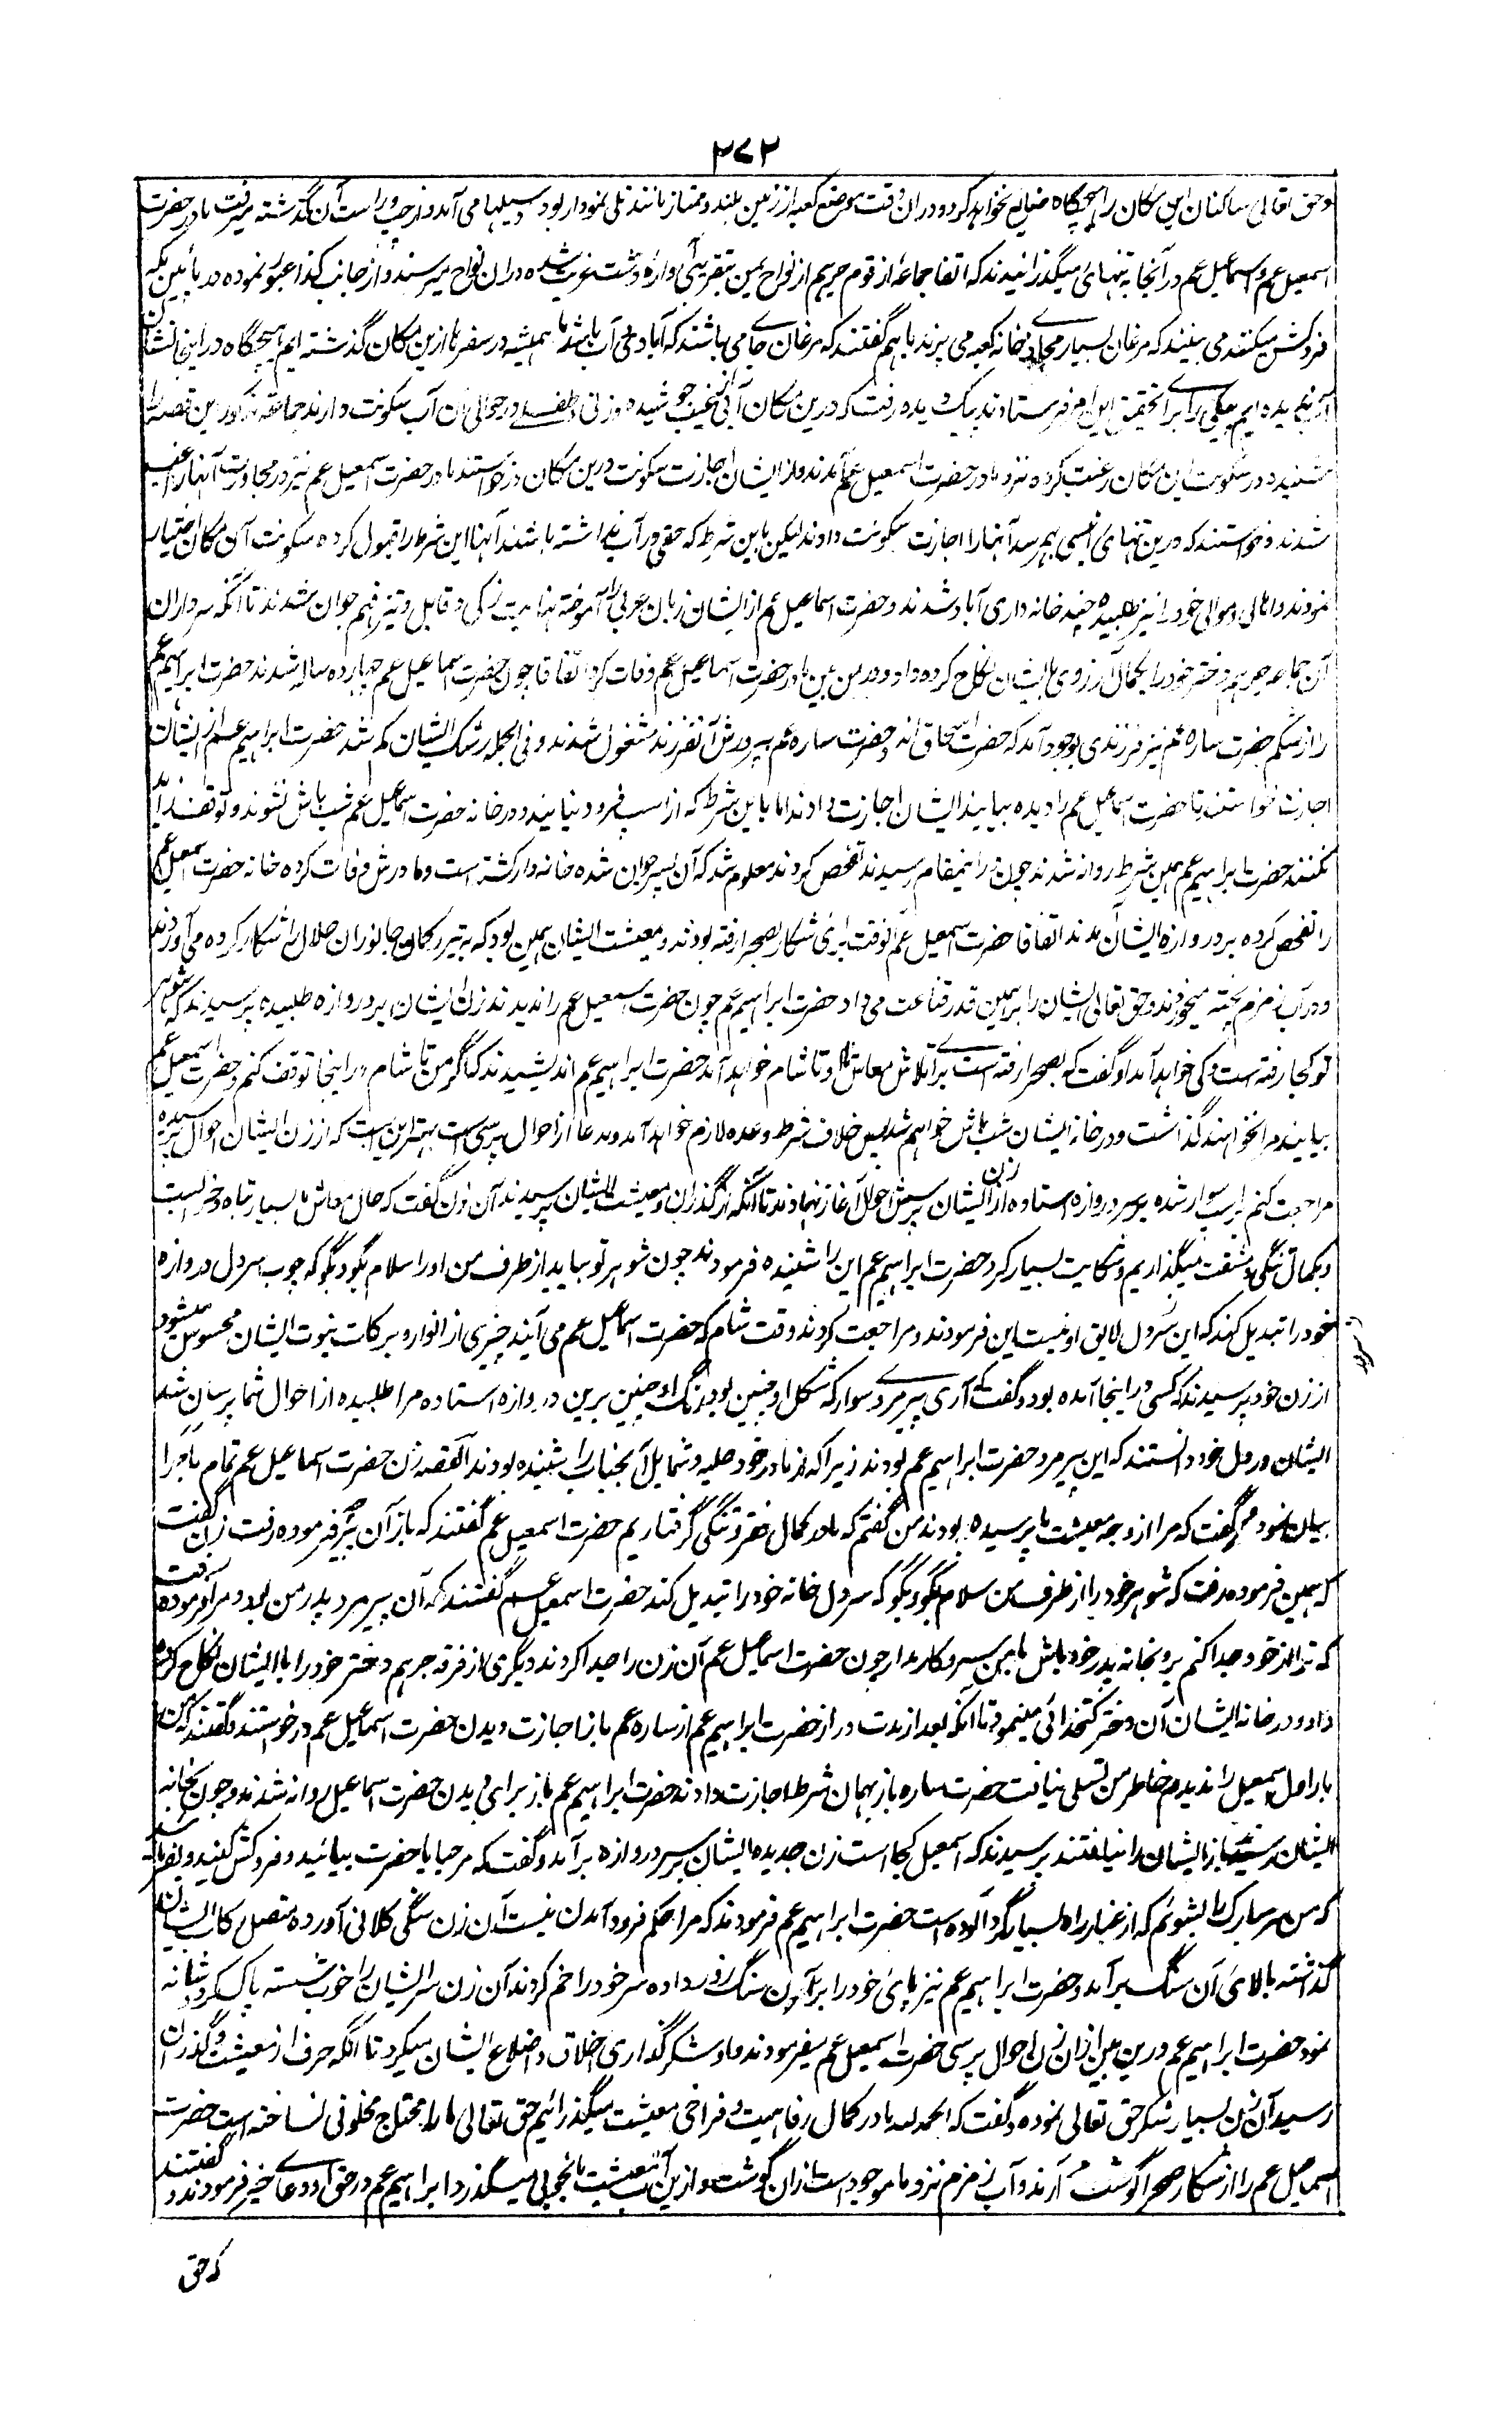 ۲۷۲
وحق تعالی ساکنان این مکان را هیچگاه ضایع نخواهد کرد و دران وقت موضع کعبه از زمین بلند و ممتاز مانند تلی نمودار بود و سیلها می آمد و از چپ و راست آن گذشته میرفت مادر حضرت
اسمعیل عم و اسماعیل عم در آنجا به تنهای میگذرانیدند که اتفاقا جماعهٔ از قوم جرهم از نواح یمن بتقریبی آوارهٔ دشت غربت شده دران نواح میرسند و از جانب کدا عبور نموده در پائین مکه
فروکش میکنند می بینند که مرغان بسیار محاذی خانه کعبه می پرند باهم گفتند که مرغان جای می باشند که آبادی آب باشد ما همیشه در سفرها ازین مکان گذشته ایم هیچگاه در اینجا نشان
آب ندیده ایم یکی را برای تحقیق این امر فرستادند پیک دیده رفت که درین مکان آبی از غیب جوشیده و زنی و طفلی در حوالی آن آب سکونت دارند جماعه مذکور این قصه را
شنیده در سکونت این مکان رغبت کرده نزد مادر حضرت اسمعیل عم آمدند و از ایشان اجازت سکونت درین مکان درخواستند مادر حضرت اسمعیل عم نیز در مجاورت آنها راغب
شدند و خواستند که درین تنهای انسی بهم رسد آنها را اجازت سکونت دادند لیکن باین شرط که حقی در آب نداشته باشند آنها این شرط را قبول کرده سکونت آن مکان اختیار
نمودند و اهالی و موالی خود را نیز طلبیده چند خانه داری آباد شدند و حضرت اسماعیل عم از ایشان زبان عربی را آموخته بغایت زکی و قابل و تیز فهم جوان شدند تا آنکه سرداران
آن جماعه جرهم دختر خود را بکمال آرزوی با ایشان نکاح کرده داد و درین بین مادر حضرت اسماعیل عم وفات کرد اتفاقا چون حضرت اسماعیل عم چهارده ساله شدند حضرت ابراهیم عم
را از شکم حضرت ساره عم نیز فرزندی بوجود آمد که حضرت اسحاق اند و حضرت ساره عم بپرورش آن فرزند مشغول شدند و فی الجمله رشک ایشان کم شد حضرت ابراهیم عم از ایشان
اجازت خواستند تا حضرت اسماعیل عم را دیده بیایند ایشان اجازت دادند اما باین شرط که از اسپ فرود نیایند و در خانه حضرت اسماعیل عم شب باش نشوند و توقف زاید
نکنند حضرت ابراهیم عم بهمین شرط روانه شدند چون در اینمقام رسیدند تفحص کردند معلوم شد که آن پسر جوان شده خانه دار گشته است و مادرش وفات کرده خانه حضرت اسمعیل عم
را تفحص کرده بر دروازه ایشان آمدند اتفاقا حضرت اسمعیل عم آنوقت برای شکار بصحرا رفته بودند و معیشت ایشان همین بود که به تیر و کمان جانوران حلال را شکار کرده می آوردند
و در آب زمزم پخته میخوردند و حق تعالی ایشان را بر همین قدر قناعت می داد حضرت ابراهیم عم چون حضرت اسمعیل عم را ندیدند زن ایشان بر دروازه طلبیده پرسیدند که شوهر
تو کجا رفته است و کی خواهد آمد او گفت که بصحرا رفته است برای تلاش معاش ما و تا شام خواهد آمد حضرت ابراهیم عم اندیشیدند که اگر من تا شام در اینجا توقف کنم و حضرت اسمعیل عم
بیایند مرا نخواهند گذاشت و در خانه ایشان شب باش خواهم شد پس خلاف شرط و وعده لازم خواهد آمد و مدعا از احوال پرسی است بهتر این است که از زن ایشان احوال پرسیده
مراجعت کنم اسپ سوار شده بر سر دروازه استاده از زن ایشان پرسش احوال آغاز نهادند تا آنکه از گذران و معیشت ایشان پرسیدند آن زن گفت که حال معاش ما بسیار تباه و خراب است
و بکمال تنگی و مشقت میگذاریم و شکایت بسیار کرد حضرت ابراهیم عم این را شنیده فرمودند چون شوهر تو بیاید از طرف من او را سلام بگو و بگو که چوب سردل دروازه
خود را تبدیل کند که این سردل لایق او نیست این فرمودند و مراجعت کردند وقت شام که حضرت اسماعیل عم می آیند چیزی از انوار و برکات نبوت ایشان محسوس میشود
از زن خود پرسیدند که کسی در اینجا آمده بود و گفت آری پیرمردی سوار که شکل او چنین بود و رنگ او چنین برین دروازه استاده مرا طلبیده از احوال شما پرسان شد
ایشان در دل خود دانستند که این پیرمرد حضرت ابراهیم عم بودند زیرا که از مادر خود حلیه و شمایل آنجناب را شنیده بودند القصه زن حضرت اسماعیل عم تمام ماجرا
بیان نمود و گفت که مرا از وجه معیشت ما پرسیده بودند من گفتم که ما در کمال فقر و تنگی گرفتاریم حضرت اسمعیل عم گفتند که باز آن پیر چه فرموده رفت زن گفت
که همین فرموده رفت که شوهر خود را از طرف من سلام بگو و بگو که سردل خانه خود را تبدیل کند حضرت اسمعیل عم گفتند که آن پیرمرد پدر من بود و مرا فرموده رفت
که ترا از خود جدا کنم برو بخانه پدر خود باش با من سروکار مدار چون حضرت اسماعیل عم آن زن را جدا کردند دیگری از فرقه جرهم دختر خود را با ایشان نکاح کرده
داد و در خانه ایشان آن دختر کتخدائی مینمود تا آنکه بعد از مدت دراز حضرت ابراهیم عم از ساره عم باز اجازت دیدن حضرت اسماعیل عم درخواستند و گفتند که من
بار اول اسمعیل را ندیدم خاطر من تسلی نیافت حضرت ساره باز بهمان شرط اجازت دادند حضرت ابراهیم عم باز برای دیدن حضرت اسماعیل روانه شدند و چون بخانه
ایشان رسیدند باز ایشان را نیافتند پرسیدند که اسمعیل کجا است زن جدیده ایشان بر سر دروازه برآمد و گفت که مرحبا یا حضرت بیائید و فروکش کنید و بفرمائید
که من سر مبارک را بشویم که از غبار راه بسیار گرد آلوده است حضرت ابراهیم عم فرمودند که مرا حکم فرود آمدن نیست آن زن سنگی کلانی آورده متصل رکاب ایشان
گذاشته بالای آن سنگ برآمد و حضرت ابراهیم عم نیز پای خود را بر آن سنگ زور داده سر خود را خم کردند آن زن سر ایشان را خوب شسته پاک کرد و شانه
نمود حضرت ابراهیم عم درین بین ازان زن احوال پرسی حضرت اسمعیل عم میفرمودند و او شکر گذاری اخلاق و اضلاع ایشان میکرد تا آنکه حرف از معیشت و گذران
رسید آن زن بسیار شکر حق تعالی نموده و گفت که الحمد لله ما در کمال رفاهیت و فراخی معیشت میگذرانیم حق تعالی ما را محتاج مخلوقی نساخته است حضرت
اسماعیل عم را از شکار صحرا گوشت آرند و آب زمزم نزد ما موجود است ازان گوشت و ازین آب معیشت ما بخوبی میگذرد ابراهیم عم در حق او دعای خیر فرمودند و گفتند
که حق